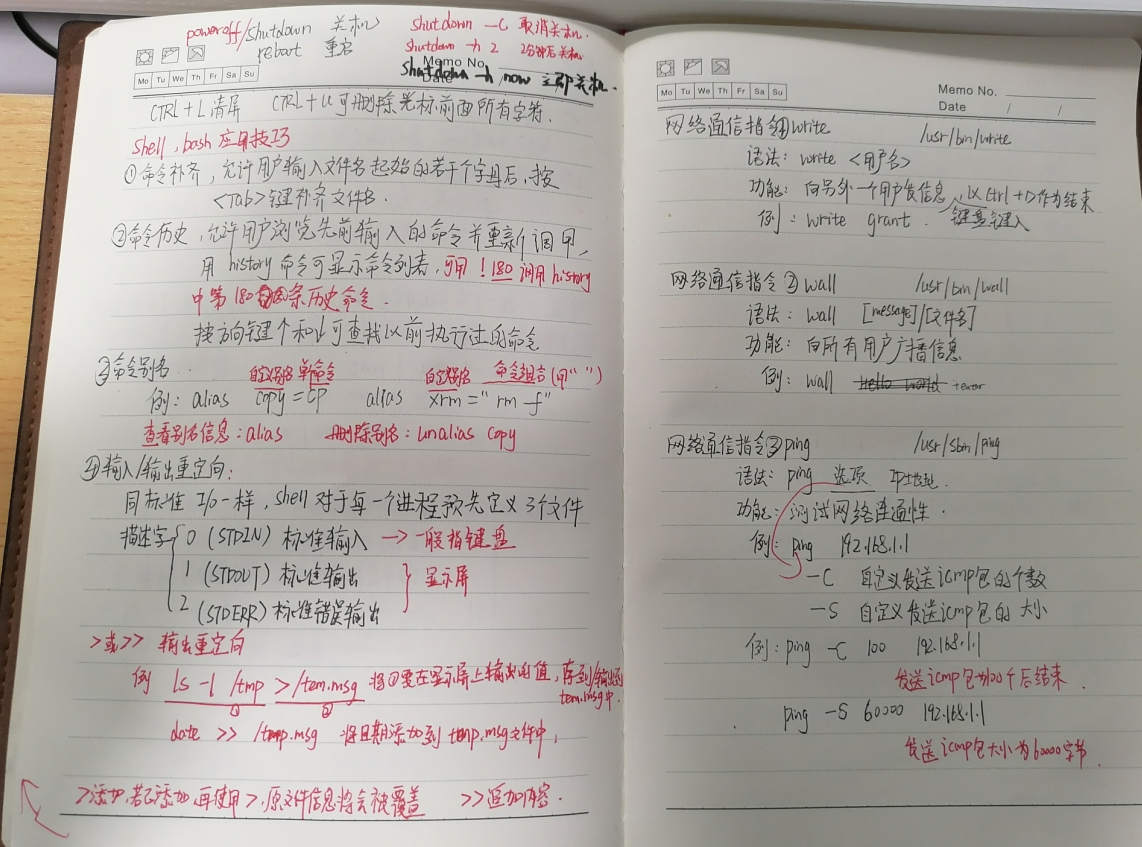 poweroff/shutdown 关机
reboot 重启
shutdown -c 取消关机.
shutdown -h 2 2分钟后关机
shutdown -h now 立即关机.
Memo No.
Date
Mo Tu We Th Fr Sa Su
CTRL+L清屏 CTRL+U可删除光标前面所有字符.
shell、bash应用技巧
①命令补齐，允许用户输入文件名起始的若干个字母后，按
<Tab>键补齐文件名.
②命令历史，允许用户浏览先前输入的命令并重新调用，
用history命令可显示命令列表，可用！180调用history
中第180条历史命令.
按方向键↑和↓可查找以前执行过的命令
③命令别名
自定义别名 单命令 自定义别名 命令组合(用“ ”)
例：alias copy=cp alias xrm=“rm -f”
查看别名信息：alias 删除别名：unalias copy
④输入/输出重定向：
同标准I/o一样，shell对于每一个进程预先定义3个文件
描述字 0 (STDIN) 标准输入 → 一般指键盘
1 (STDOUT) 标准输出
2 (STDERR) 标准错误输出
显示屏
>或>> 输出重定向
例 ls -l /tmp >/tem.msg 将①要在显示屏上输出的值，存到/输出到
① ② tem.msg中.
date >> /tmp.msg 将日期添加到tmp.msg文件中，
>添加，若已添加，再使用>，原文件信息将会被覆盖 >>追加内容.
Mo Tu We Th Fr Sa Su
Memo No.
Date / /
网络通信指令①write /usr/bin/write
语法：write <用户名>
功能：向另外一个用户发信息，以Ctrl+D作为结束
键盘键入
例：write grant.
网络通信指令②wall /usr/bin/wall
语法：wall [message]/[文件名]
功能：向所有用户广播信息
例：wall Hello world
网络通信指令③ping /usr/sbin/ping
语法：ping 选项 IP地址.
功能：测试网络连通性.
例：ping 192.168.1.1
-C 自定义发送icmp包的个数
-S 自定义发送icmp包的大小
例：ping -C 100 192.168.1.1
发送icmp包为100个后结束
ping -S 60000 192.168.1.1
发送icmp包大小为60000字节.